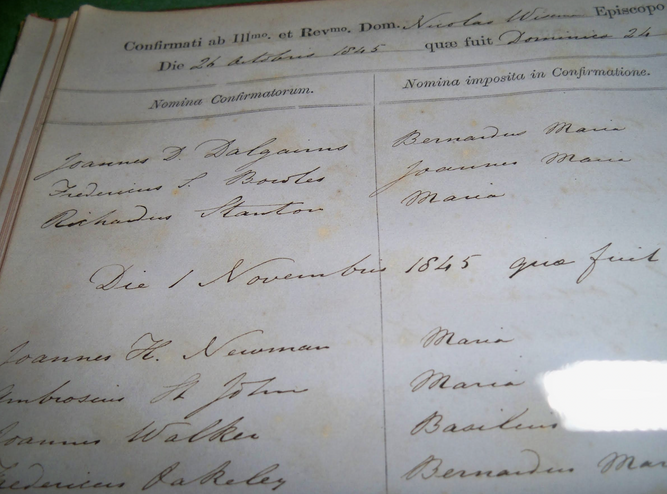 Confirmati ab Illme. et Revme. Dom. Nicolao Episcopo
Die 26 Octobris 1845 quæ fuit Dominica 24
Nomina Confirmatorum. Nomina imposita in Confirmatione.
Joannes D. Dalgairns Bernardus Maria
Fredericus S. Bowles Joannes Maria
Richardus Stanton Maria
Die 1 Novembris 1845 quæ fuit
Joannes H. Newman Maria
Ambrosius St John Maria
Joannes Walker Basilius
Fredericus Oakeley Bernardus Mar